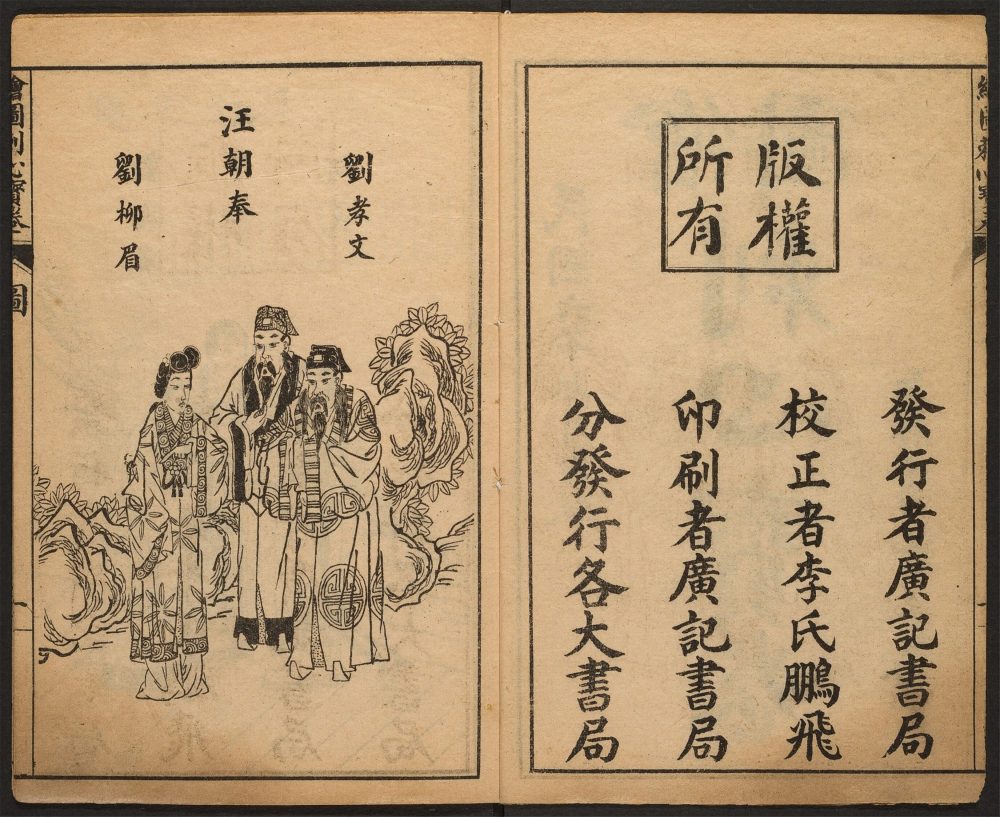 版權
所有
發行者廣記書局
校正者李氏鵬飛
印刷者廣記書局
分發行各大書局
劉孝文
汪朝奉
劉柳眉
繪圖刺心寶卷
圖
一